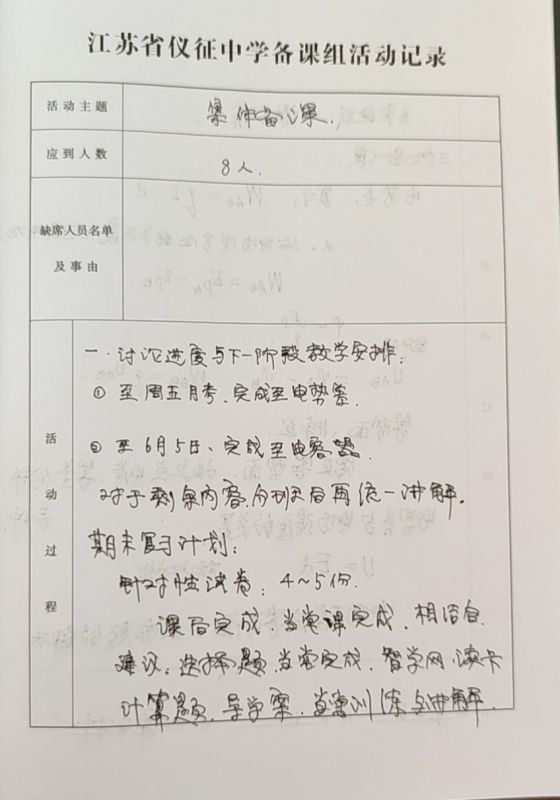 江苏省仪征中学备课组活动记录
活动主题
集体备课.
应到人数
8人.
缺席人员名单
及事由
活动过程
一.讨论进度与下一阶段教学安排:
① 至周五月考.完成至电势差.
② 至6月5日、完成至电容器.
对于剩余内容.分班后再统一讲解。
期末复习计划:
针对性试卷: 4~5份.
课后完成.当堂课完成.相结合.
建议:选择题.当堂完成.智学网.读卡
计算题.导学案.当堂训练与讲解.